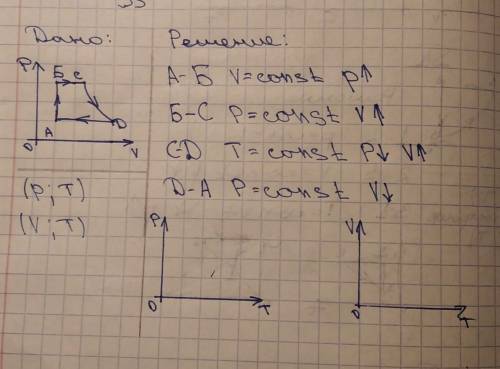 Дано:
Решение:
P
Б
C
A
D
0
V
А-Б V=const P↑
Б-С P=const V↑
C-D T=const P↓ V↑
D-A P=const V↓
(P;T)
(V;T)
P
0
T
V
0
T